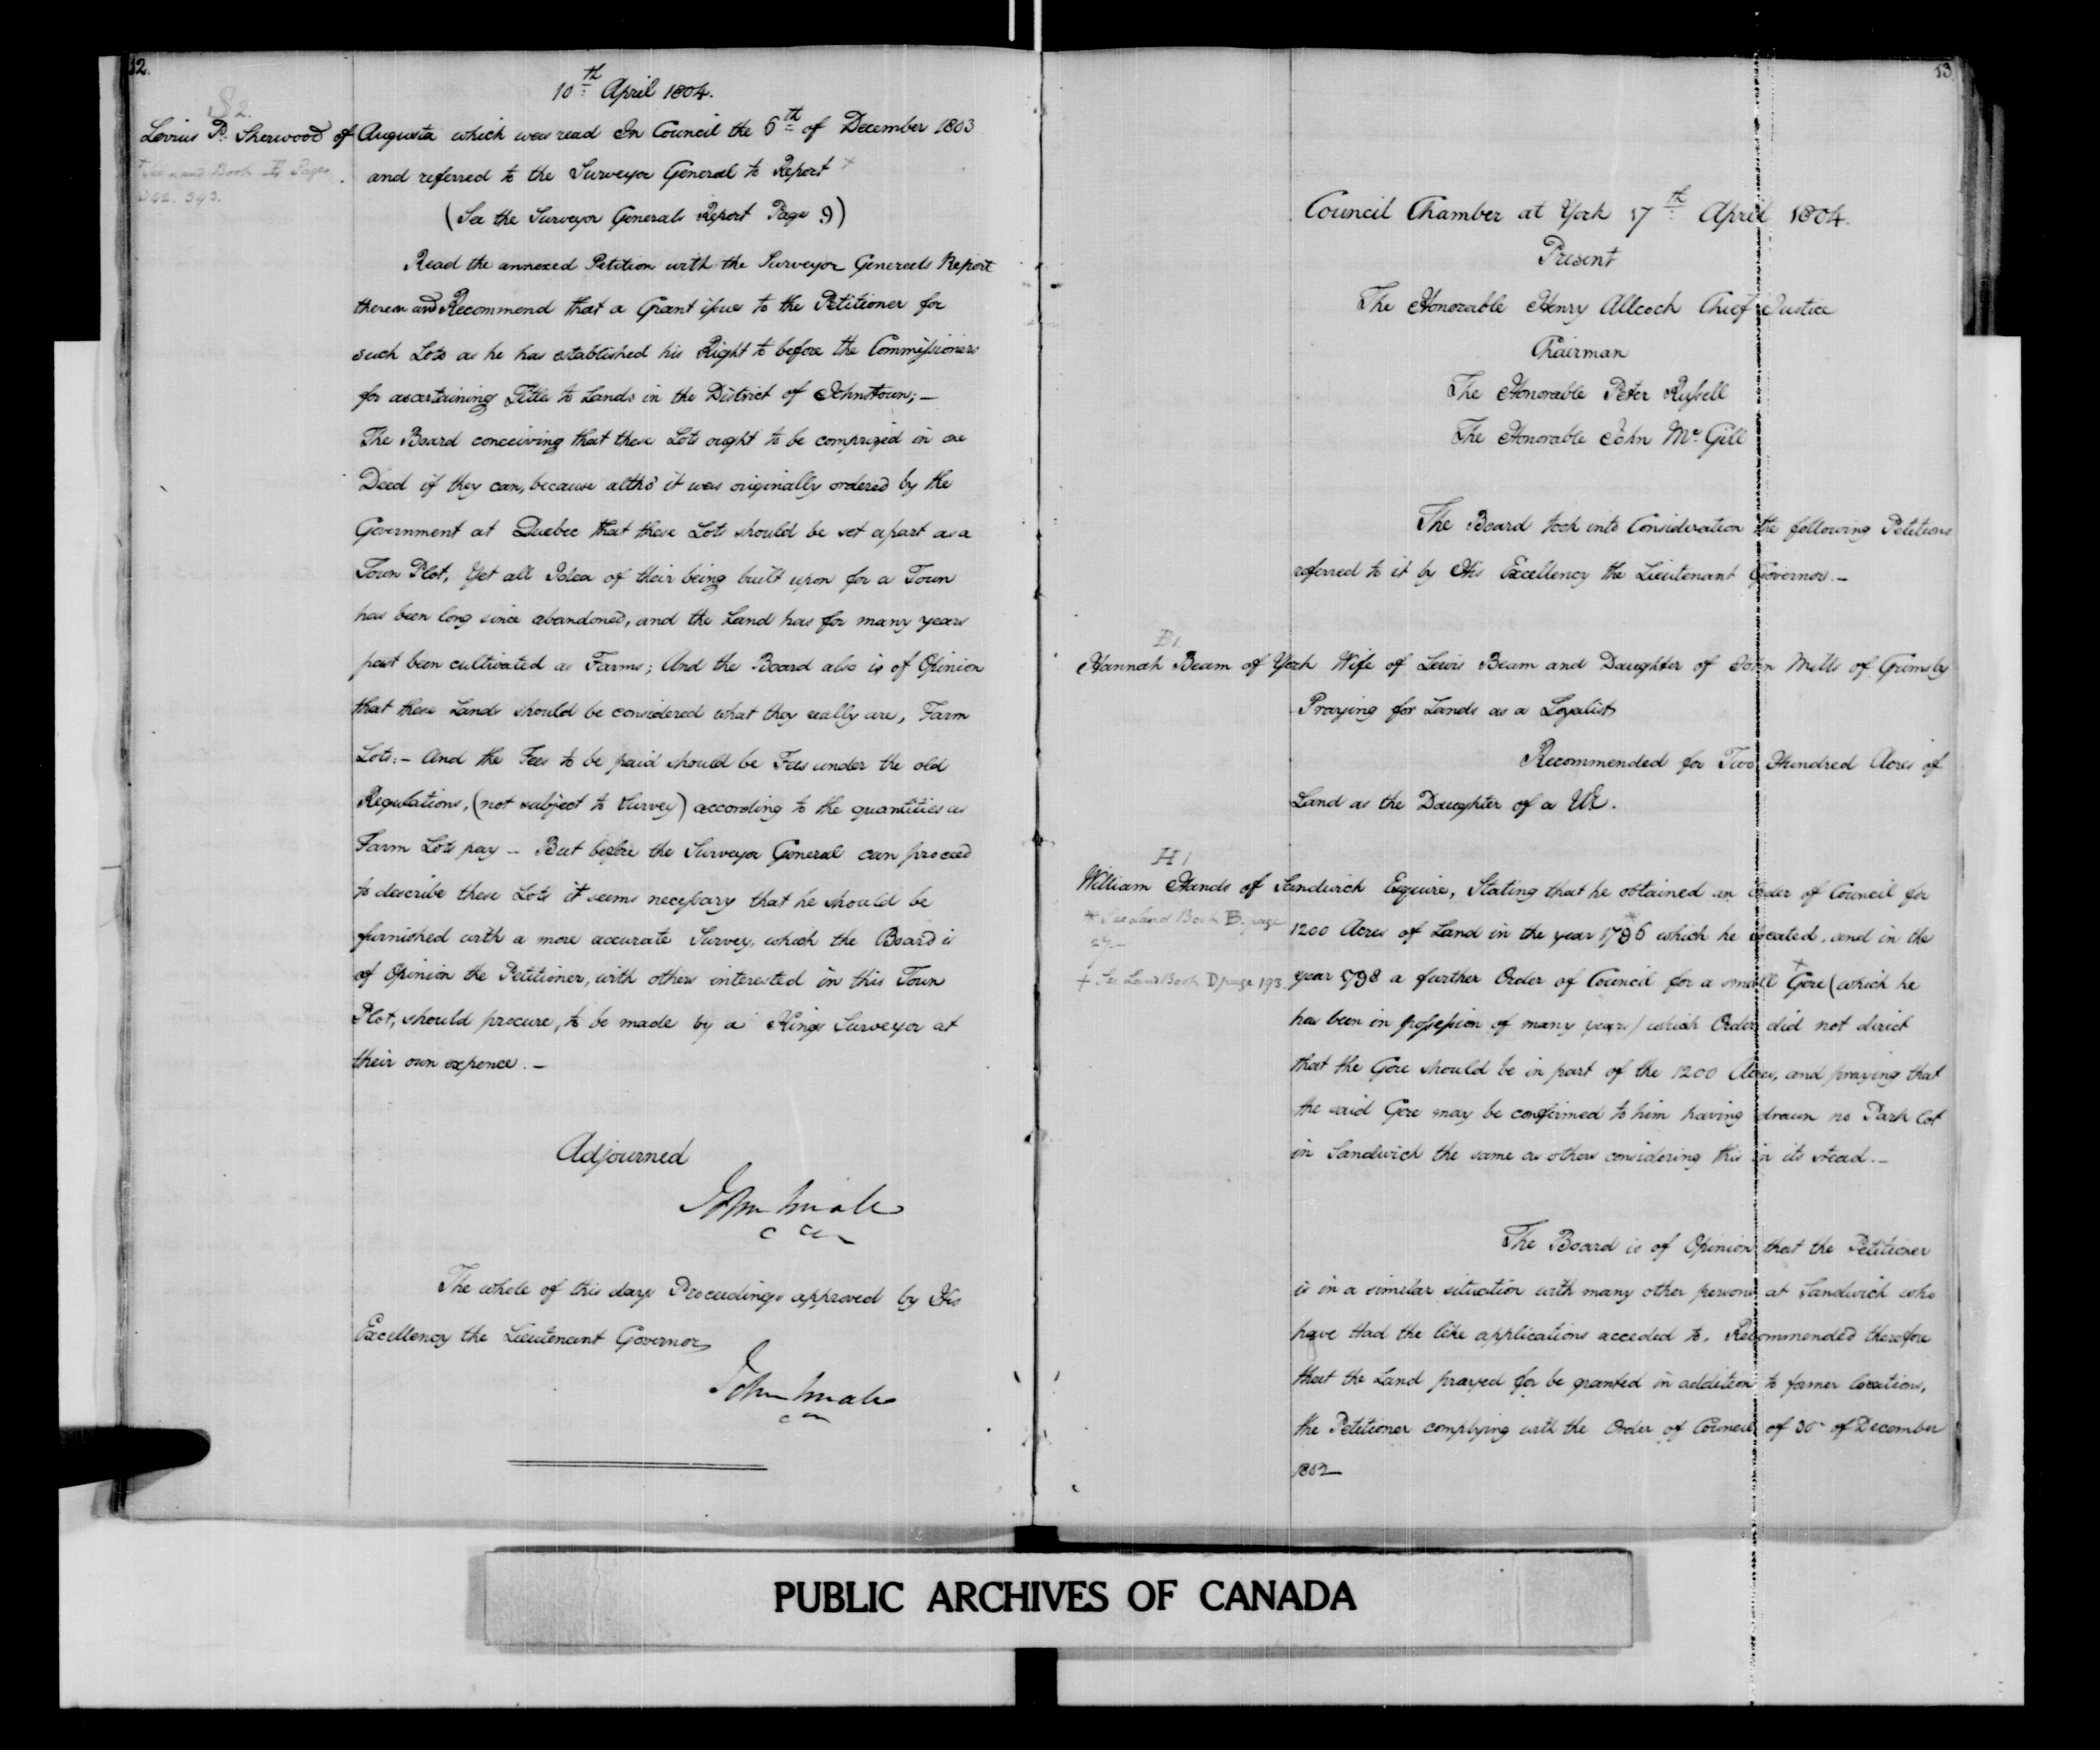 12.
10th April 1804.
S 2.
Levius P. Sherwood of Augusta which was read In Council the 6th of December 1803
and referred to the Surveyor General to Report +
+ See Land Book Pages
342. 343.
(See the Surveyor Generals Report Page 9)
Read the annexed Petition with the Surveyor Generals Report
thereon and Recommend that a Grant issue to the Petitioner for
such Lots as he has established his Right to before the Commissioners
for ascertaining Titles to Lands in the District of Johnstown; —
The Board conceiving that these Lots ought to be comprized in one
Deed if they can, because altho' it was originally ordered by the
Government at Quebec that these Lots should be set apart as a
Town Plot, Yet all Idea of their being built upon for a Town
has been long since abandoned, and the Land has for many years
past been cultivated as Farms; And the Board also is of Opinion
that these Lands should be considered what they really are, Farm
Lots: — And the Fees to be paid should be Fees under the old
Regulations, (not subject to Survey) according to the quantities as
Farm Lots pay — But before the Surveyor General can proceed
to describe these Lots it seems necessary that he should be
furnished with a more accurate Survey, which the Board is
of Opinion the Petitioner, with others interested in this Town
Plot, should procure, to be made by a Kings Surveyor at
their own expence. —
Adjourned
The whole of this days Proceedings approved by His
Excellency the Lieutenant Governor
13
Council Chamber at York 17th April 1804.
Present
The Honorable Henry Allcock Chief Justice
Chairman
The Honorable Peter Russell
The Honorable John McGill
The Board took into Consideration the following Petitions
referred to it by His Excellency the Lieutenant Governor. —
B 1
Hannah Beam of York Wife of Lewis Beam and Daughter of John Mills of Grimsby
Praying for Lands as a Loyalist
Recommended for Two Hundred Acres of
Land as the Daughter of a UE.
H 1
William Hands of Sandwich Esquire, Stating that he obtained an Order of Council for
* See Land Book B. page
27. —
1200 Acres of Land in the year 1796* which he located, and in the
+ See Land Book D page 193.
year 1798 a further Order of Council for a small Gore + (which he
has been in possession of many years) which Order did not direct
that the Gore should be in part of the 1200 Acres, and praying that
the said Gore may be confirmed to him having drawn no Park Lot
in Sandwich the same as others considering this in its stead. —
The Board is of Opinion that the Petitioner
is in a similar situation with many other persons at Sandwich who
have Had the like applications acceded to, Recommended therefore
that the Land prayed for be granted in addition to former locations,
the Petitioner complying with the Order of Council of 30 of December
1802
PUBLIC ARCHIVES OF CANADA